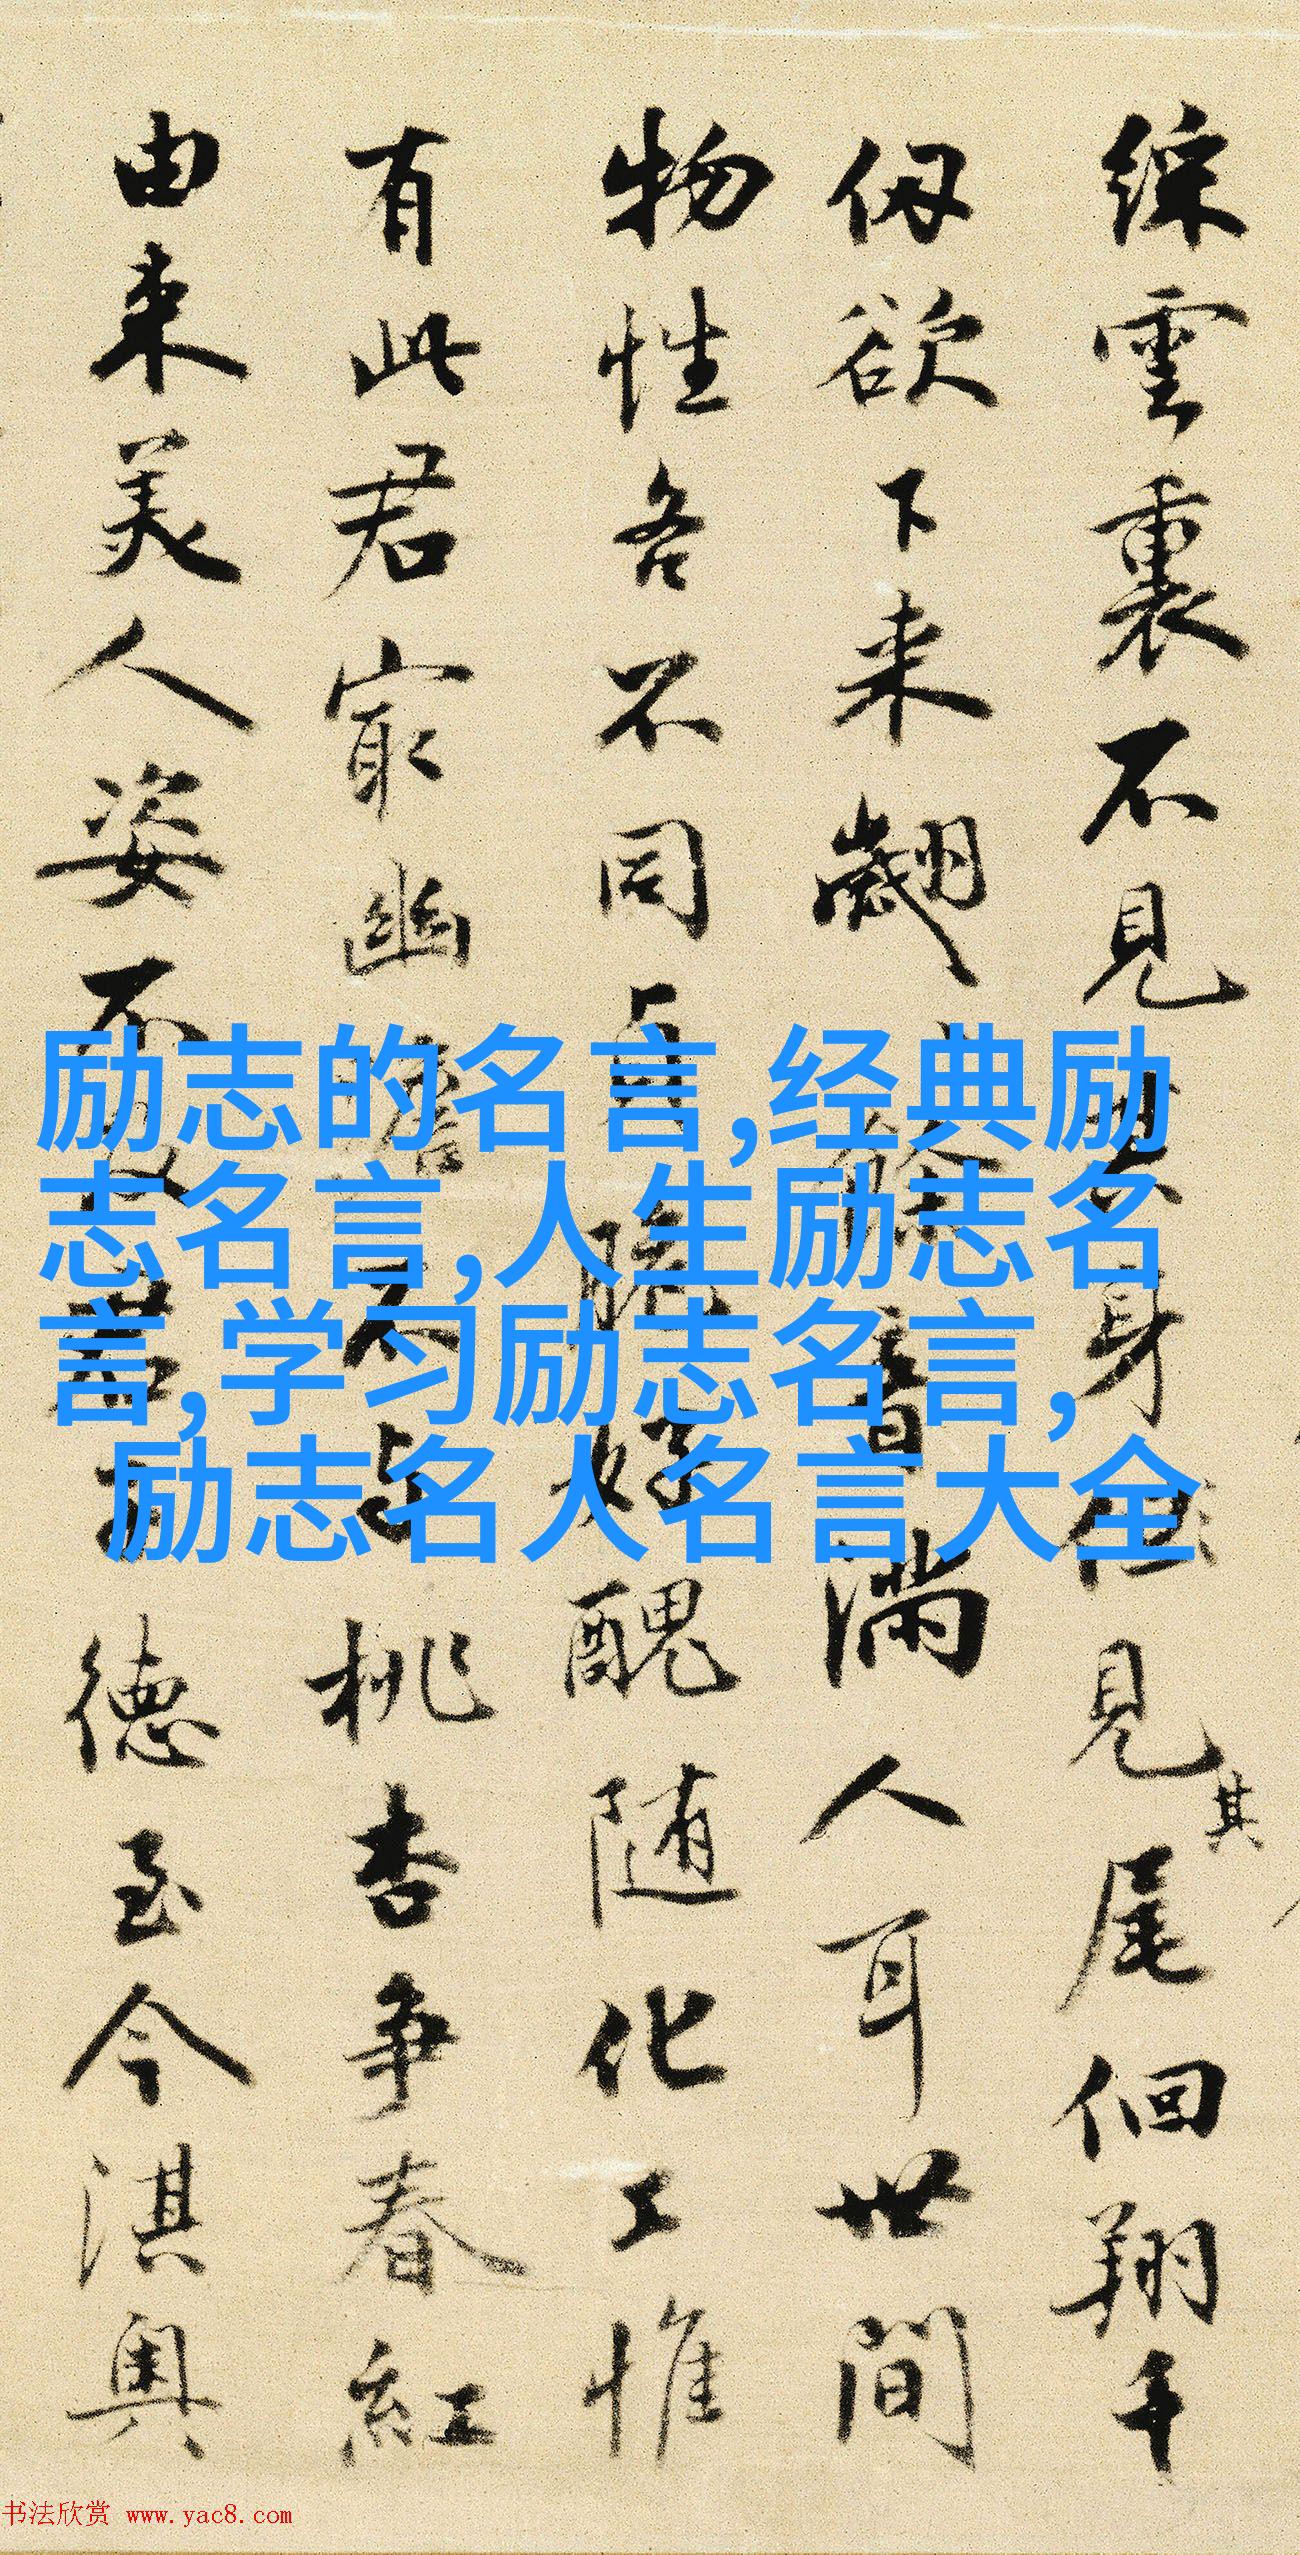 綵雲裏不見身但見其尾徊翔千
仭欲下来翽滿人耳世間
物性各不同好醜随化工惟
有此君寂幽不与桃杏争春紅
由来美人姿不德至今淇奥
励志的名言,经典励
志名言,人生励志名
言,学习励志名言,
励志名人名言大全
书法欣赏 www.yac8.com